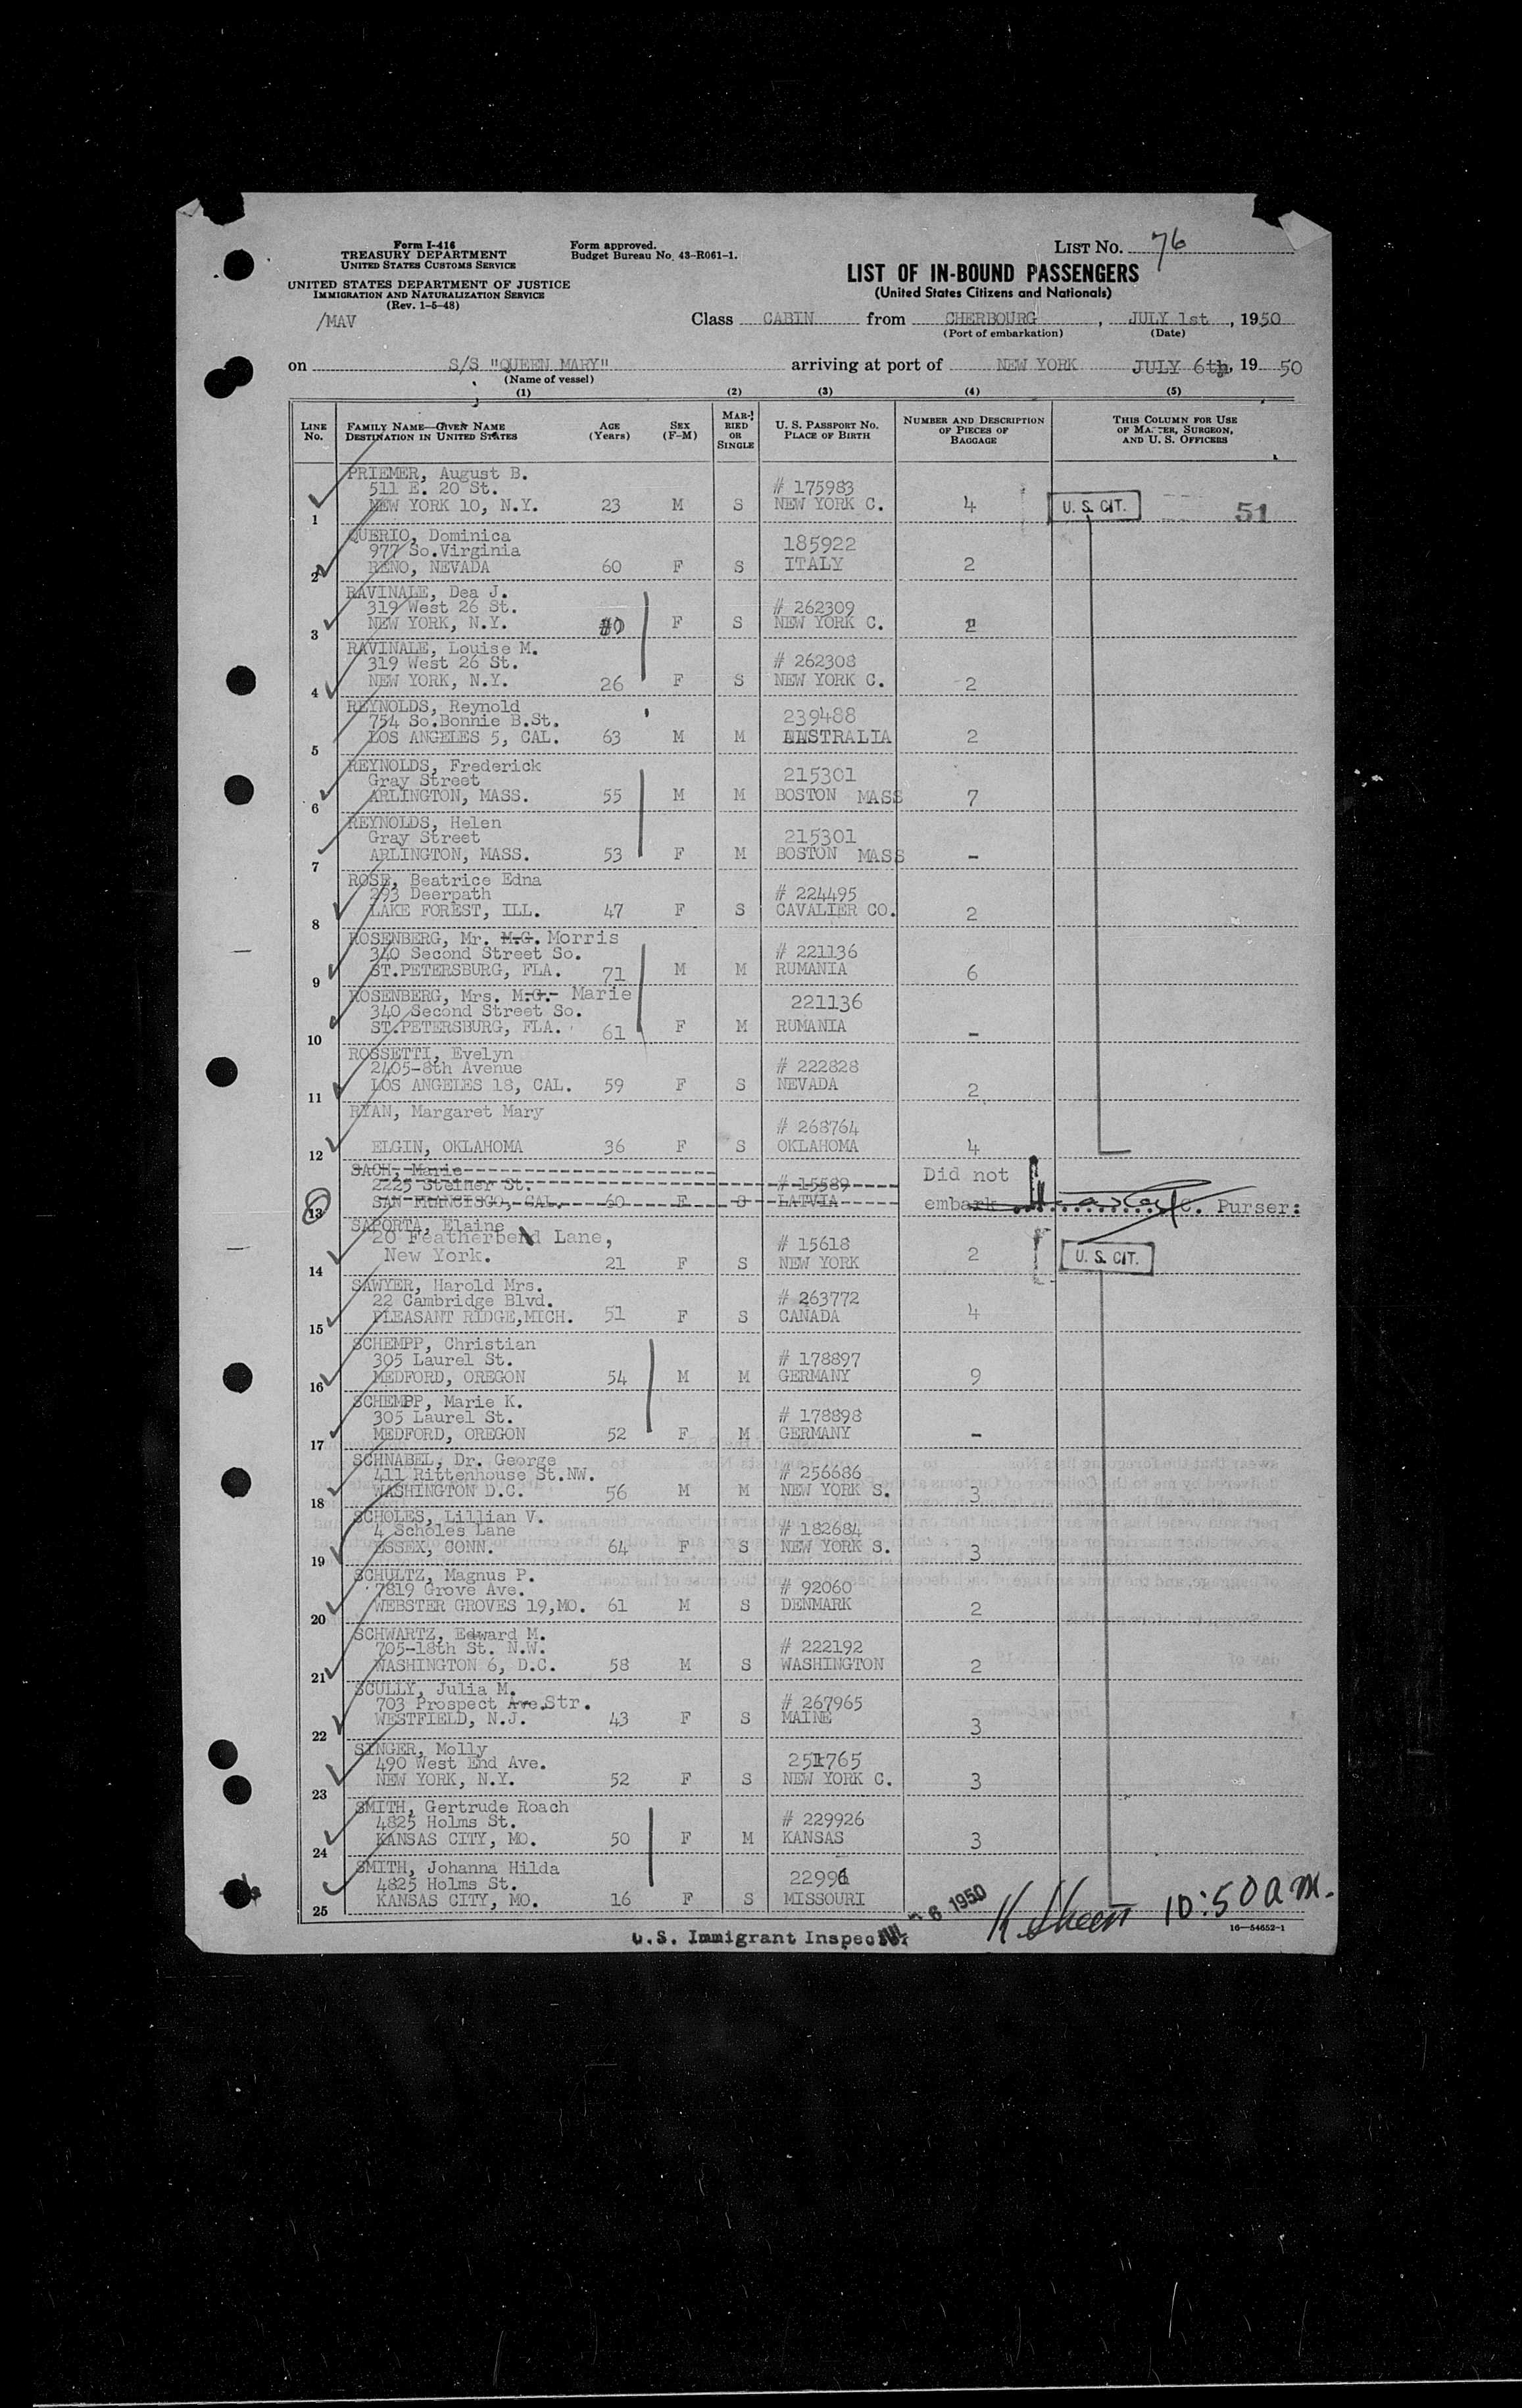 Form I-416
TREASURY DEPARTMENT
UNITED STATES CUSTOMS SERVICE
UNITED STATES DEPARTMENT OF JUSTICE
IMMIGRATION AND NATURALIZATION SERVICE
(Rev. 1-5-48)
/MAV
Form approved.
Budget Bureau No. 43-R061-1.
LIST No. 76
LIST OF IN-BOUND PASSENGERS
(United States Citizens and Nationals)
Class CABIN from CHERBOURG, JULY 1st, 1950
(Port of embarkation) (Date)
on S/S "QUEEN MARY" arriving at port of NEW YORK JULY 6th, 19 50
(Name of vessel)
(1) (2) (3) (4) (5)
LINE No. FAMILY NAME—GIVEN NAME DESTINATION IN UNITED STATES AGE (Years) SEX (F-M) MARRIED OR SINGLE U. S. PASSPORT No. PLACE OF BIRTH NUMBER AND DESCRIPTION OF PIECES OF BAGGAGE THIS COLUMN FOR USE OF MASTER, SURGEON, AND U. S. OFFICERS
PRIEMER, August B.
511 E. 20 St. # 175983
1 NEW YORK 10, N.Y. 23 M S NEW YORK C. 4 U. S. CIT. 51
QUERIO, Dominica
977 So.Virginia 185922
2 RENO, NEVADA 60 F S ITALY 2
RAVINALE, Dea J.
319 West 26 St. # 262309
3 NEW YORK, N.Y. F S NEW YORK C. 2
RAVINALE, Louise M.
319 West 26 St. # 262308
4 NEW YORK, N.Y. 26 F S NEW YORK C. 2
REYNOLDS, Reynold
754 So.Bonnie B.St. 239488
5 LOS ANGELES 5, CAL. 63 M M AUSTRALIA 2
REYNOLDS, Frederick
Gray Street 215301
6 ARLINGTON, MASS. 55 M M BOSTON MASS 7
REYNOLDS, Helen
Gray Street 215301
7 ARLINGTON, MASS. 53 F M BOSTON MASS -
ROSE, Beatrice Edna
293 Deerpath # 224495
8 LAKE FOREST, ILL. 47 F S CAVALIER CO. 2
ROSENBERG, Mr. M.G. Morris
340 Second Street So. # 221136
9 ST.PETERSBURG, FLA. 71 M M RUMANIA 6
ROSENBERG, Mrs. M.G. Marie
340 Second Street So. 221136
10 ST.PETERSBURG, FLA. 61 F M RUMANIA -
ROSSETTI, Evelyn
2405-8th Avenue # 222828
11 LOS ANGELES 18, CAL. 59 F S NEVADA 2
RYAN, Margaret Mary
# 268764
12 ELGIN, OKLAHOMA 36 F S OKLAHOMA 4
SACH, Marie Did not
2225 Steiner St. # 15589
13 SAN FRANCISCO, CAL. 60 F S LATVIA embark C. Purser:
SAPORTA, Elaine
20 Featherbend Lane, # 15618
14 New York. 21 F S NEW YORK 2 U. S. CIT.
SAWYER, Harold Mrs.
22 Cambridge Blvd. # 263772
15 PLEASANT RIDGE,MICH. 51 F S CANADA 4
SCHEMPP, Christian
305 Laurel St. # 178897
16 MEDFORD, OREGON 54 M M GERMANY 9
SCHEMPP, Marie K.
305 Laurel St. # 178898
17 MEDFORD, OREGON 52 F M GERMANY -
SCHNABEL, Dr. George
411 Rittenhouse St.NW. # 256686
18 WASHINGTON D.C. 56 M M NEW YORK S. 3
SCHOLES, Lillian V.
4 Scholes Lane # 182684
19 ESSEX, CONN. 64 F S NEW YORK S. 3
SCHULTZ, Magnus P.
7819 Grove Ave. # 92060
20 WEBSTER GROVES 19,MO. 61 M S DENMARK 2
SCHWARTZ, Edward M.
705-18th St. N.W. # 222192
21 WASHINGTON 6, D.C. 58 M S WASHINGTON 2
SCULLY, Julia M.
703 Prospect Ave.Str. # 267965
22 WESTFIELD, N.J. 43 F S MAINE 3
SINGER, Molly
490 West End Ave. 251765
23 NEW YORK, N.Y. 52 F S NEW YORK C. 3
SMITH, Gertrude Roach
4825 Holms St. # 229926
24 KANSAS CITY, MO. 50 F M KANSAS 3
SMITH, Johanna Hilda
4825 Holms St.
25 KANSAS CITY, MO. 16 F S MISSOURI
U.S. Immigrant Inspector JUL 6 1950 10:50 am.
16—54652-1